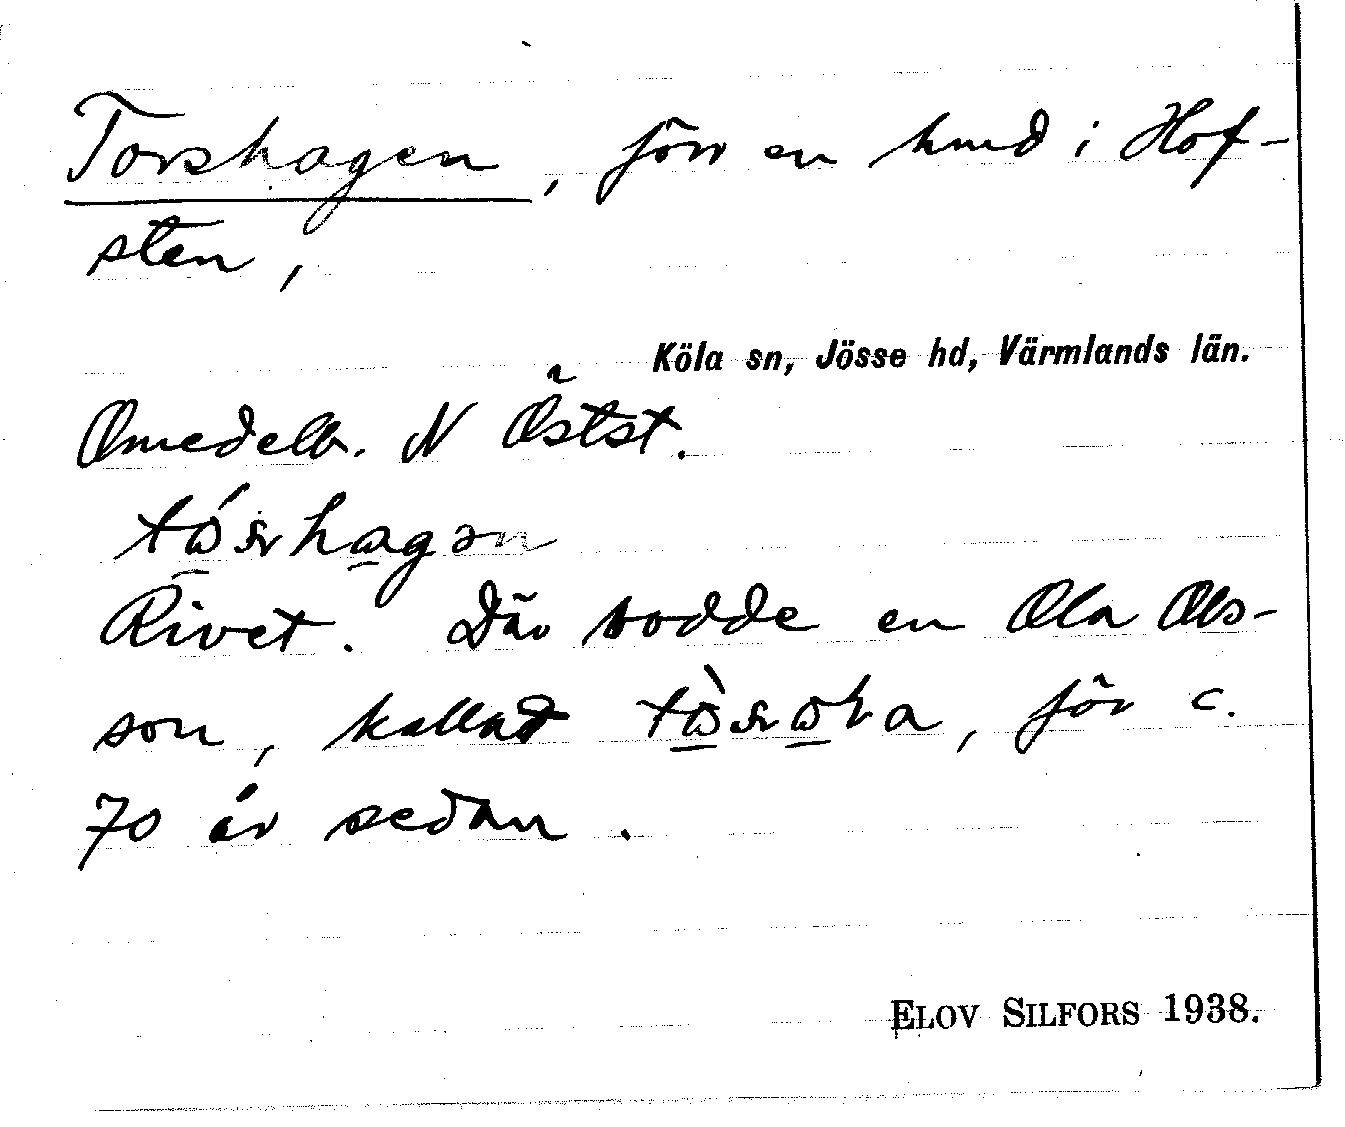 Torshagen, förr en hmd i Hof-
sten,
Köla sn, Jösse hd, Värmlands län.
Omedelb. N Östst.
Rivet. Där bodde en Ola Ols-
son, kallad, för c.
70 år sedan.
ELOV SILFORS 1938.